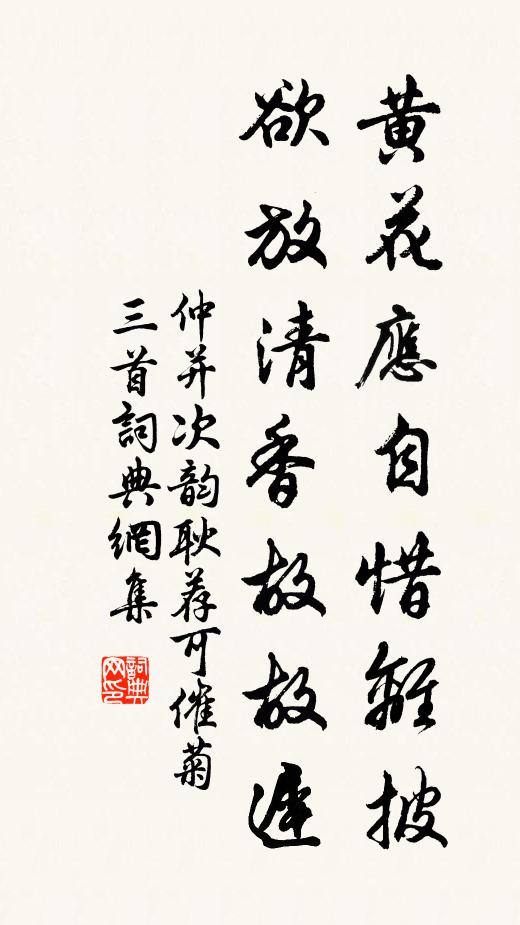 黄花應自惜離披
欲放清香故故遲
仲并次韵耿荐可催菊
三首詞典網集
詞典网印